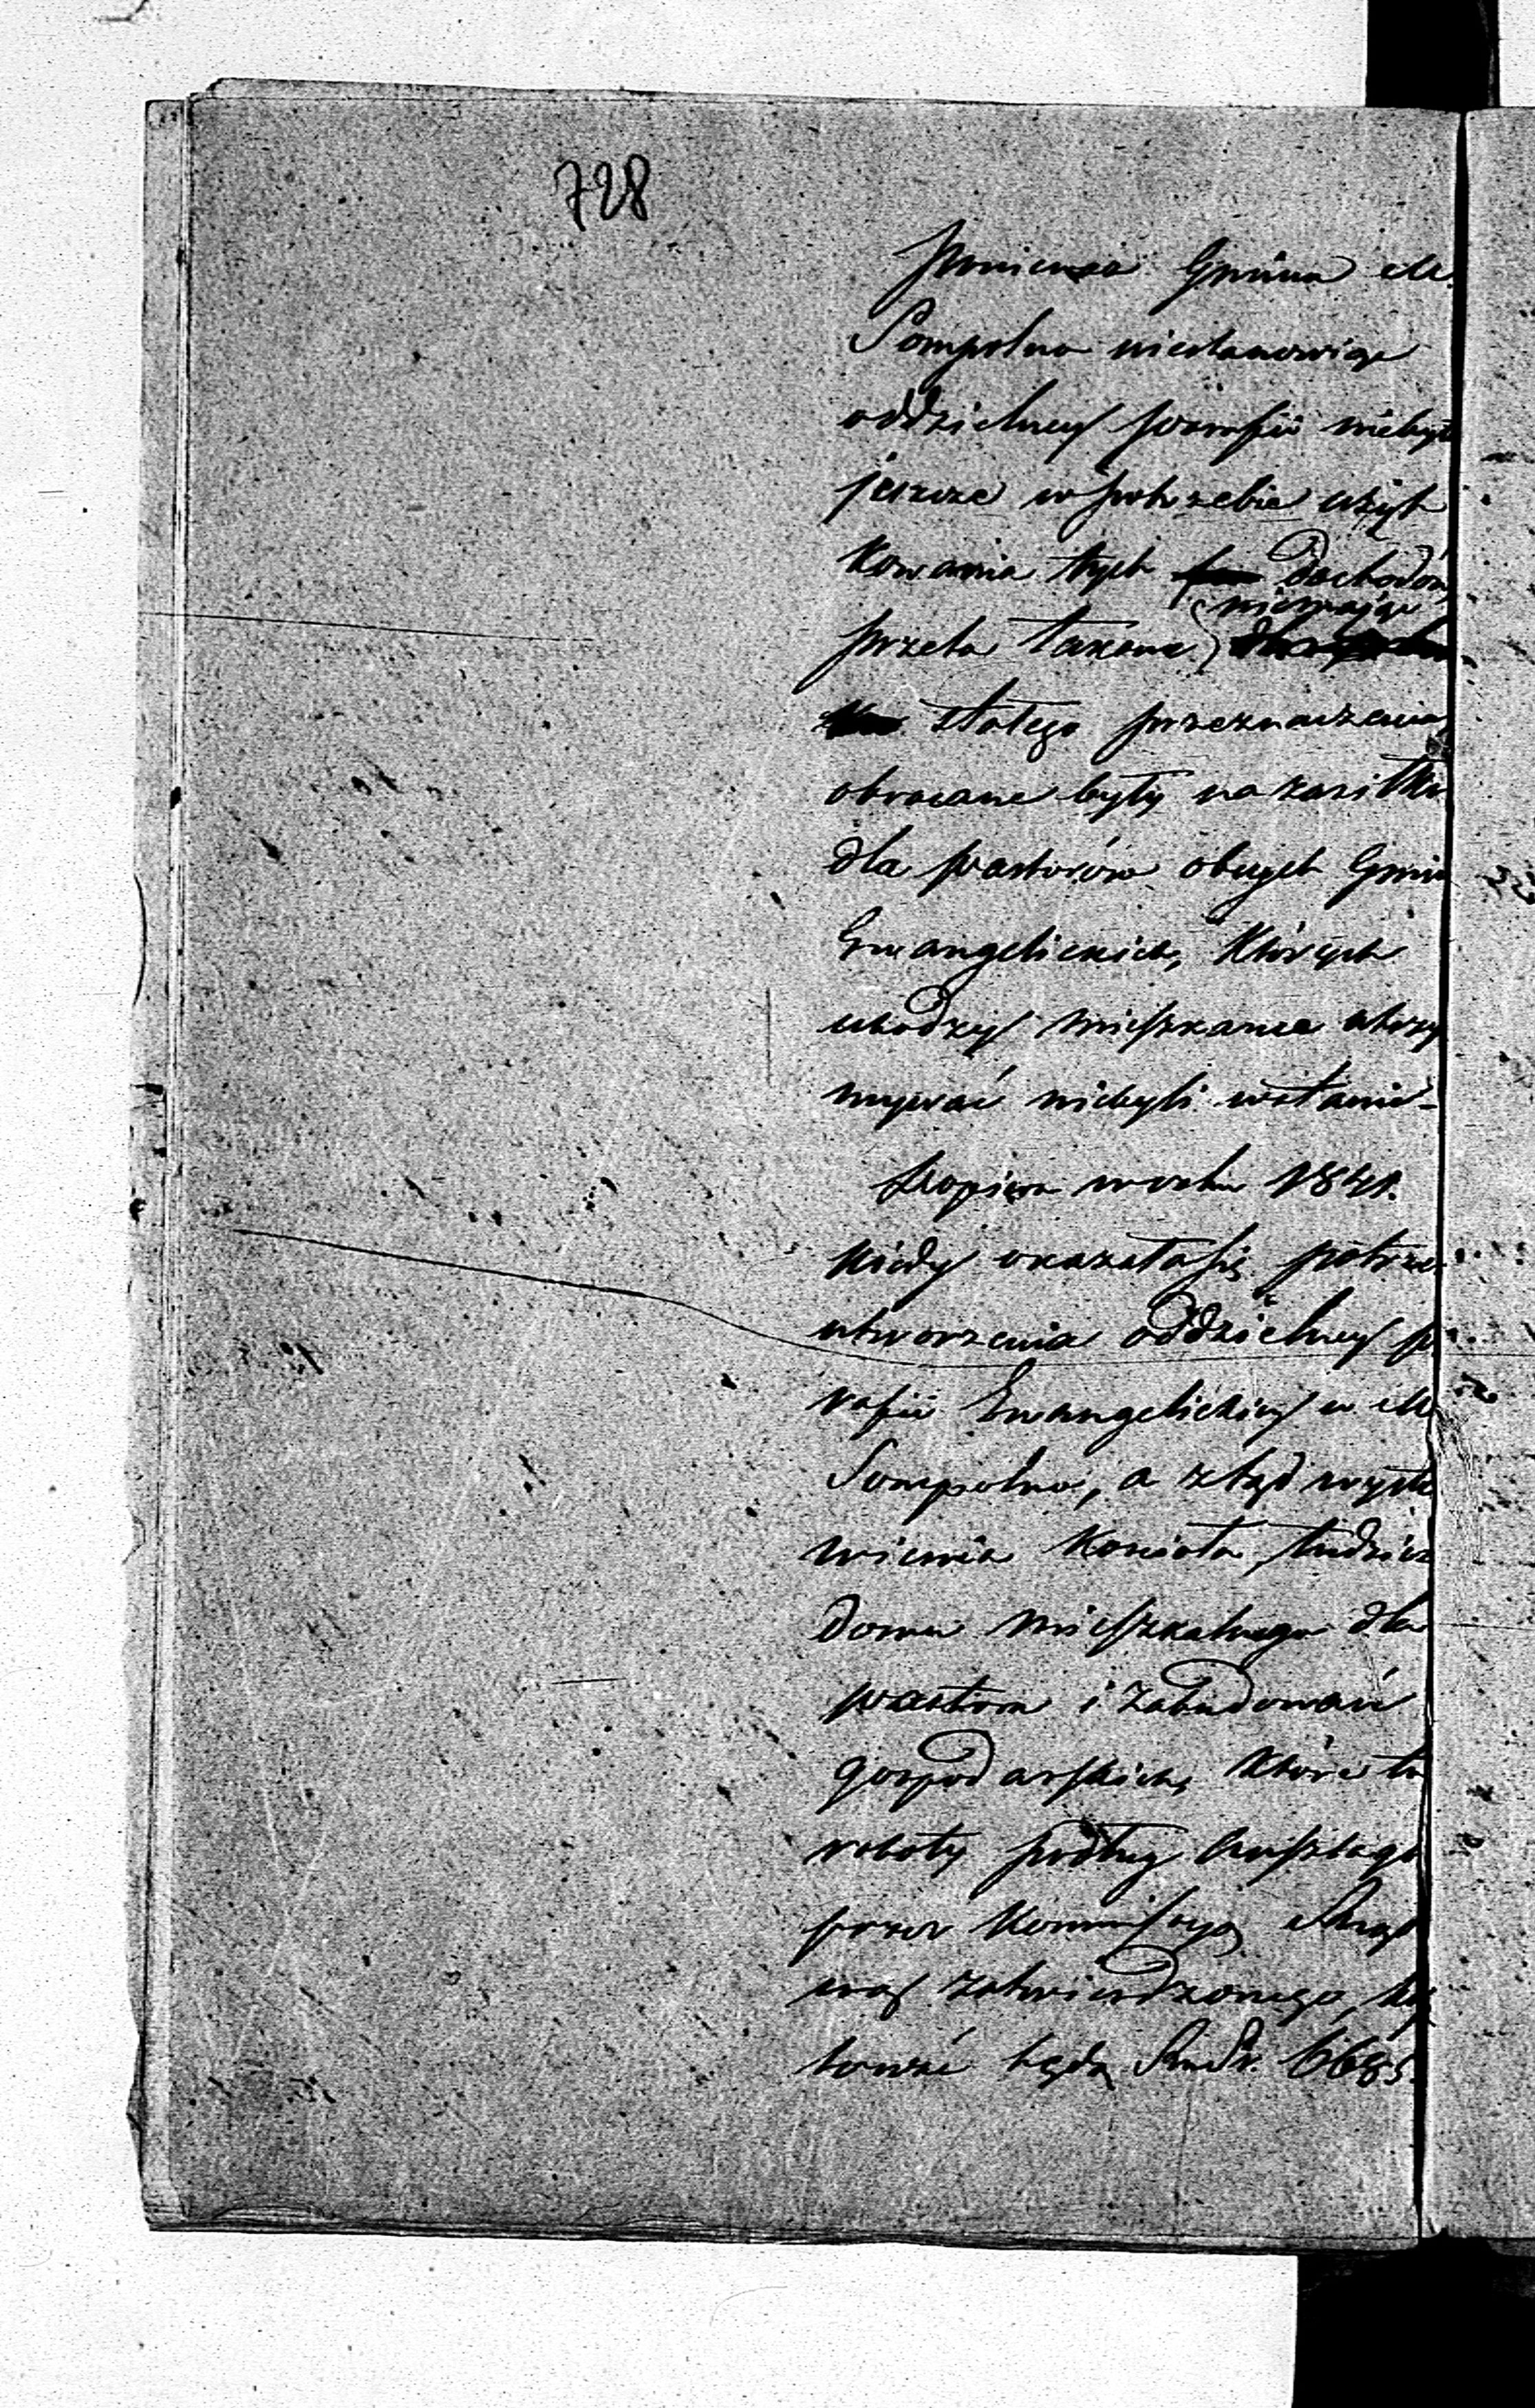 728
ponieważ Gmina M.
Sompolna niestanowiąc
oddzielney parafii niebyła
jeszcze w potrzebie użyt
kowania tych dochodów
niemając
przeto takowe
stałego przeznaczenia
obracane były na zasiłki
dla pastorów obcych Gmin
Ewangelickich, których
ubodzy mieszkance utrzy
mywać niebyli wstanie -
dopiero w roku 1841.
kiedy okazała się potrze
utworzenia oddzielney pa
rafii Ewangelickiey w M
Sompolno, a ztąd wysta
wienia kościoła, tudzież
domu mieszkalnego dla
pastora i zabudowań
gospodarskich, które to
roboty podług Anszlagu
przez Kommissyą Rząd
wą zatwierdzonego, ko
sztować będą Rub Sr. 6685.